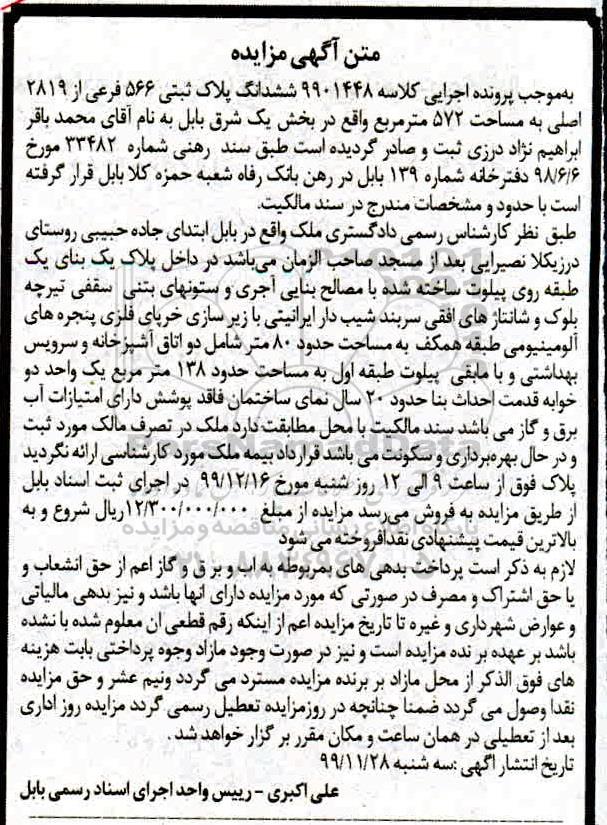 متن آگهی مزایده
به‌موجب پرونده اجرایی کلاسه ۹۹۰۱۴۴۸ ششدانگ پلاک ثبتی ۵۶۶ فرعی از ۲۸۱۹
اصلی به مساحت ۵۷۲ مترمربع واقع در بخش یک شرق بابل به نام آقای محمد باقر
ابراهیم نژاد درزی ثبت و صادر گردیده است طبق سند رهنی شماره ۳۳۴۸۲ مورخ
۹۸/۶/۶ دفترخانه شماره ۱۳۹ بابل در رهن بانک رفاه شعبه حمزه کلا بابل قرار گرفته
است با حدود و مشخصات مندرج در سند مالکیت.
طبق نظر کارشناس رسمی دادگستری ملک واقع در بابل ابتدای جاده حبیبی روستای
درزیکلا نصیرایی بعد از مسجد صاحب الزمان می‌باشد در داخل پلاک یک بنای یک
طبقه روی پیلوت ساخته شده با مصالح بنایی آجری و ستونهای بتنی سقفی تیرچه
بلوک و شناژهای افقی سربند شیب دار ایرانیتی با زیر سازی خرپای فلزی پنجره های
آلومینیومی طبقه همکف به مساحت حدود ۸۰ متر شامل دو اتاق آشپزخانه و سرویس
بهداشتی و با مابقی پیلوت طبقه اول به مساحت حدود ۱۳۸ متر مربع یک واحد دو
خوابه قدمت احداث بنا حدود ۲۰ سال نمای ساختمان فاقد پوشش دارای امتیازات آب
برق و گاز می باشد سند مالکیت با محل مطابقت دارد ملک در تصرف مالک مورد ثبت
و در حال بهره‌برداری و سکونت می باشد قرارداد بیمه ملک مورد کارشناسی ارائه نگردید
پلاک فوق از ساعت ۹ الی ۱۲ روز شنبه مورخ ۹۹/۱۲/۱۶ در اجرای ثبت اسناد بابل
از طریق مزایده به فروش می‌رسد مزایده از مبلغ ۱۲/۳۰۰/۰۰۰/۰۰۰ریال شروع و به
بالاترین قیمت پیشنهادی نقدا فروخته می شود
لازم به ذکر است پرداخت بدهی های بمربوطه به اب و بر ق و گاز اعم از حق انشعاب و
یا حق اشتراک و مصرف در صورتی که مورد مزایده دارای انها باشد و نیز بدهی مالیاتی
و عوارض شهرداری و غیره تا تاریخ مزایده اعم از اینکه رقم قطعی ان معلوم شده یا نشده
باشد بر عهده بر نده مزایده است و نیز در صورت وجود مازاد وجوه پرداختی بابت هزینه
های فوق الذکر از محل مازاد بر برنده مزایده مسترد می گردد ونیم عشر و حق مزایده
نقدا وصول می گردد ضمنا چنانچه در روزمزایده تعطیل رسمی گردد مزایده روز اداری
بعد از تعطیلی در همان ساعت و مکان مقرر بر گزار خواهد شد .
تاریخ انتشار اگهی :سه شنبه ۹۹/۱۱/۲۸
علی اکبری - رییس واحد اجرای اسناد رسمی بابل